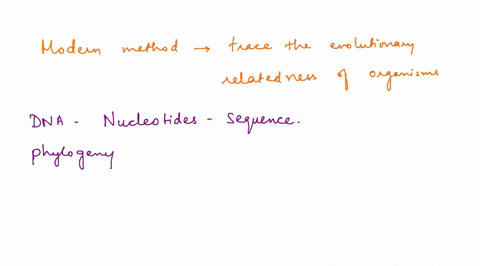 Modern method → trace the evolutionary
relatedness of organisms
DNA - Nucleotides - Sequence.
phylogeny